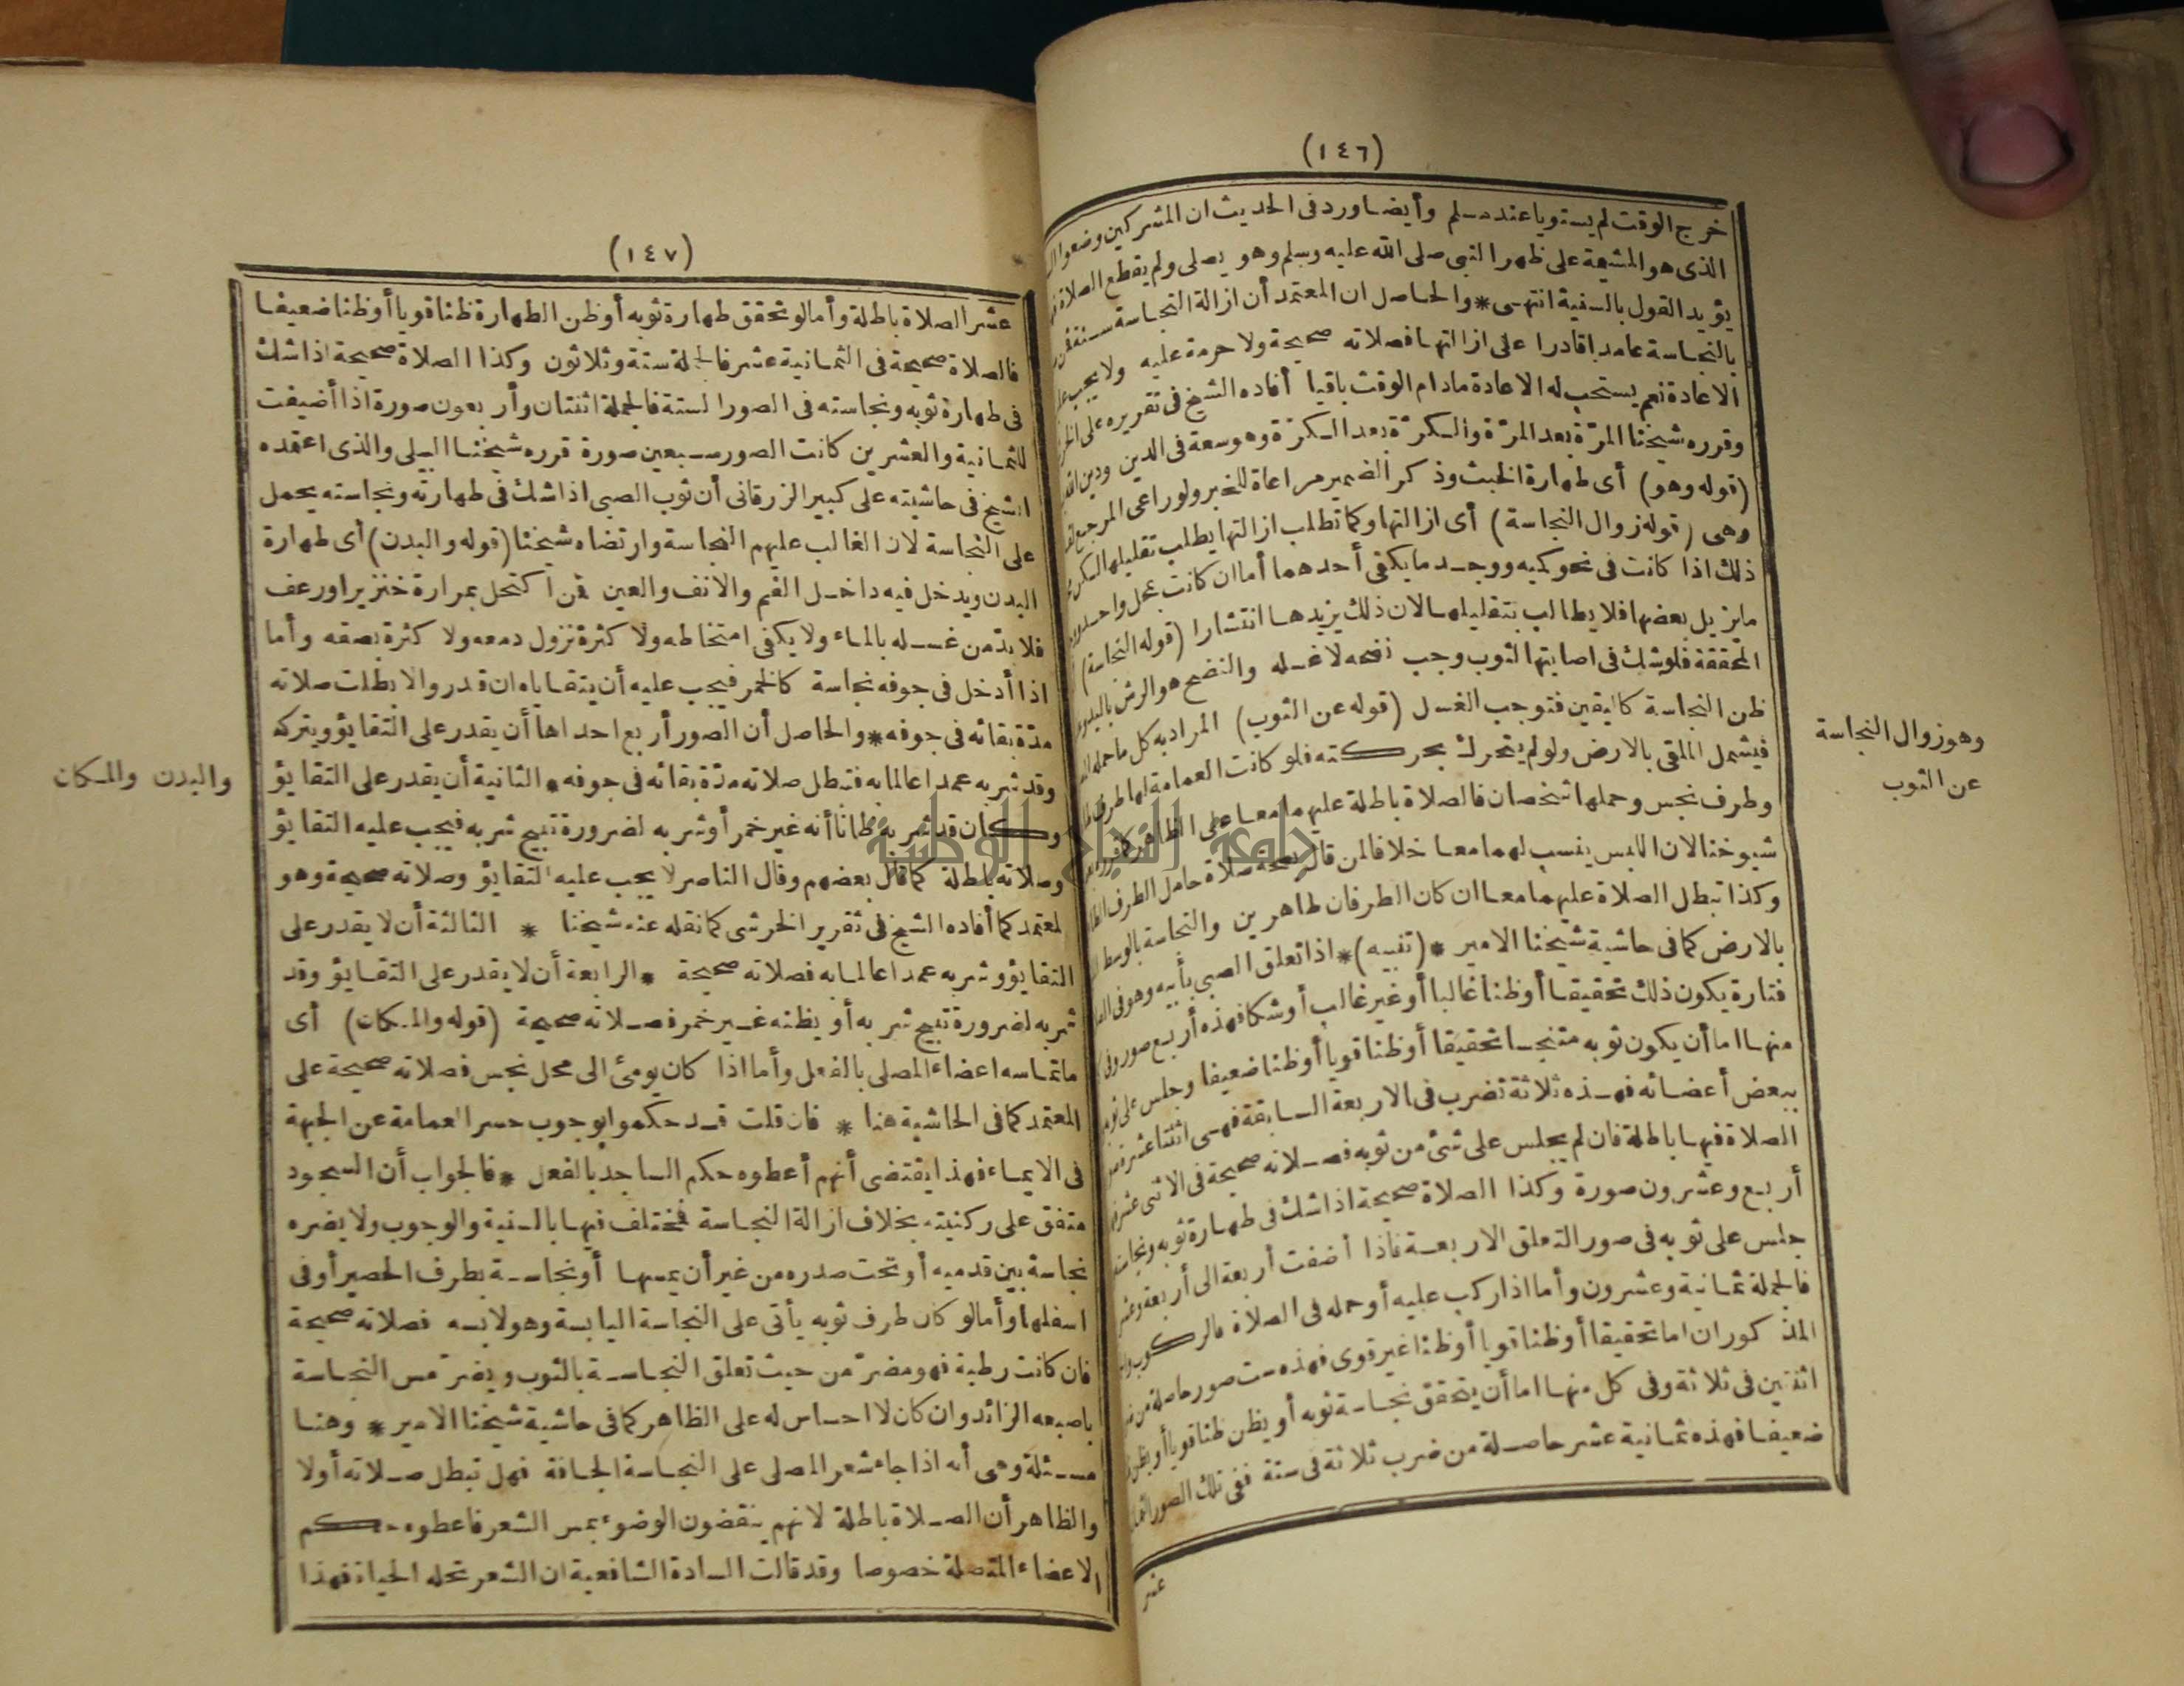 (١٤٦)
خرج الوقت لم يستويا عندهم وأيضا ورد في الحديث ان المشركين وضعوا
الذى هو المشيمة على ظهر النبى صلى الله عليه وسلم وهو يصلى ولم يقطع الصلاة
يؤيد القول بالسنية انتهى * والحاصل ان المعتمد أن ازالة النجاسة سنة
بالنجاسة عامدا قادرا على ازالتها فصلاته صحيحة ولا حرمة عليه ولا يجب
الاعادة نعم يستحب له الاعادة مادام الوقت باقيا أفاده الشيخ فى تقريره على
وقرره شيخنا المرّة بعد المرّة والكرّة بعد الكرّة وهو سعة فى الدين ودين الله
(قوله وهو) أى طهارة الخبث وذكر الضمير مراعاة للخبر ولو راعى المرجع
وهى (قوله زوال النجاسة) أى ازالتها وكما تطلب ازالتها يطلب تقليلها لكن
ذلك اذا كانت فى نحو كميه ووجد ما يكفى أحدهما أما ان كانت بمحل واحد
مايزيل بعضها فلا يطالب بتقليلها لان ذلك يزيدها انتشارا (قوله النجاسة)
المحققة فلو شك فى اصابتها لثوب وجب نضحه لا غسله والنضح هو الرش باليد
ظن النجاسة كاليقين فتوجب الغسل (قوله عن الثوب) المراد به كل ما حمله
فيشمل الملقى بالارض ولو لم يتحرك بحركته فلو كانت العمامة لها طرف
وطرف نجس وحملها شخصان فالصلاة باطلة عليهما معا على الظاهر
شيوخنا لان اللبس ينسب لهما معا خلافا لمن قال بصحة صلاة حامل الطرف
وكذا تبطل الصلاة عليهما معا ان كان الطرفان طاهرين والنجاسة بالوسط
بالارض كما فى حاشية شيخنا الامير * (تنبيه) * اذا تعلق الصبى بأبيه وهو فى
فتارة يكون ذلك تحقيقا أو ظنا غالبا أو غير غالب أو شكا فهذه أربع صور وفى
منها اما أن يكون ثوبه متنجسا تحقيقا أو ظنا قويا أو ظنا ضعيفا وجلس على
ببعض أعضائه فهذه ثلاثة تضرب فى الاربعة السابقة فهى اثنتا عشرة
الصلاة فيها باطلة فان لم يجلس على شئ من ثوبه فصلاته صحيحة فى الاثنى عشر
أربع وعشرون صورة وكذا الصلاة صحيحة اذا شك فى طهارة ثوبه
جلس على ثوبه فى صور التعلق الاربعة فاذا أضفت أربعة الى أربعة
فالجملة ثمانية وعشرون وأما اذا ركب عليه أو حمله فى الصلاة فالركوب
المذكوران اما تحقيقا أو ظنا قويا أو ظنا غير قوى فهذه ست صور حاصلة من
اثنين فى ثلاثة وفى كل منها اما أن يتحقق نجاسة ثوبه أو يظن ظنا قويا أو
ضعيفا فهذه ثمانية عشر حاصلة من ضرب ثلاثة فى ستة ففى تلك الصور
عشر
وهو زوال النجاسة
عن الثوب
(١٤٧)
عشر الصلاة باطلة وأما لو تحقق طهارة ثوبه أو ظن الطهارة ظنا قويا أو ظنا ضعيفا
فالصلاة صحيحة فى الثمانية عشر فالجملة ستة وثلاثون وكذا الصلاة صحيحة اذا شك
فى طهارة ثوبه ونجاسته فى الصور الستة فالجملة اثنتان وأربعون صورة اذا أضيفت
للثمانية والعشرين كانت الصور سبعين صورة قرره شيخنا البيلى والذى اعتمده
الشيخ فى حاشيته على كبير الزرقانى أن ثوب الصبى اذا شك فى طهارته ونجاسته يحمل
على النجاسة لان الغالب عليهم النجاسة وارتضاه شيخنا (قوله والبدن) أى طهارة
البدن ويدخل فيه داخل الفم والانف والعين فمن اكتحل بمرارة خنزير او رعف
فلا بدّ من غسله بالماء ولا يكفى امتخاطه ولا كثرة نزول دمعه ولا كثرة بصقه وأما
اذا أدخل فى جوفه نجاسة كالخمر فيجب عليه أن يتقاياه ان قدر والا بطلت صلاته
مدّة بقائه فى جوفه * والحاصل أن الصور أربع احداها أن يقدر على التقايؤ ويتركه
وقد شربه عمدا عالما به فتبطل صلاته مدّة بقائه فى جوفه * الثانية أن يقدر على التقايؤ
وكان قد شربه ظانا أنه غير خمر أو شربه لضرورة تبيح شربه فيجب عليه التقايؤ
وصلاته باطلة كما قال بعضهم وقال الناصر لا يجب عليه التقايؤ وصلاته صحيحة وهو
المعتمد كما أفاده الشيخ فى تقرير الخرشى كما نقله عنه شيخنا * الثالثة أن لا يقدر على
التقايؤ وشربه عمدا عالما به فصلاته صحيحة * الرابعة أن لا يقدر على التقايؤ وقد
شربه لضرورة تبيح شربه أو يظنه غير خمر فصلاته صحيحة (قوله والمكان) أى
ما تماسه اعضاء المصلى بالفعل وأما اذا كان يومئ الى محل نجس فصلاته صحيحة على
المعتمد كما فى الحاشية هنا * فان قلت قد حكموا بوجوب حسر العمامة عن الجبهة
فى الايماء فهذا يقتضى أنهم أعطوه حكم الساجد بالفعل * فالجواب أن السجود
متفق على ركنيته بخلاف ازالة النجاسة فمختلف فيها بالسنية والوجوب ولا يضره
نجاسة بين قدميه أو تحت صدره من غير أن يمسها أو نجاسة بطرف الحصير أو فى
اسفلها وأما لو كان طرف ثوبه يأتى على النجاسة اليابسة وهو لابسه فصلاته صحيحة
فان كانت رطبة فهو مضرّ من حيث تعلق النجاسة بالثوب ويضرّ مس النجاسة
باصبعه الزائد وان كان لا احساس له على الظاهر كما فى حاشية شيخنا الامير * وهنا
مسئلة وهى أنه اذا جاء شعر المصلى على النجاسة الجافة فهل تبطل صلاته أولا
والظاهر أن الصلاة باطلة لانهم ينقضون الوضوء بمس الشعر فاعطوه حكم
الاعضاء المتصلة خصوصا وقد قالت السادة الشافعية ان الشعر تحله الحياة فهذا
والبدن والمكان
جامعة النجاح الوطنية